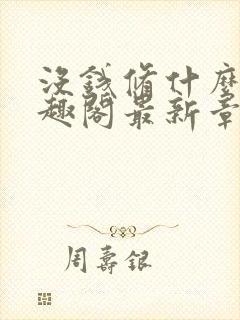 沒錢偹什麼
趣閣最新章
周壽銀